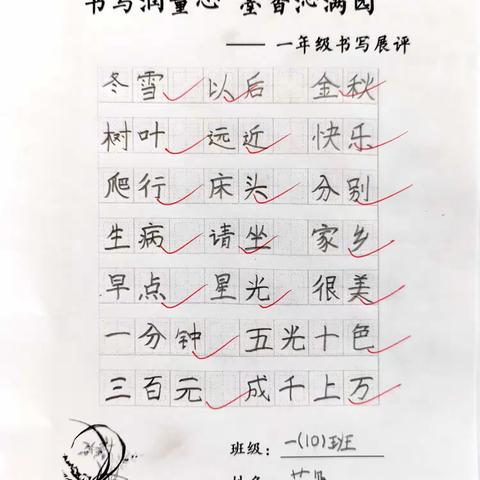 书写润童心 墨香沁满园
—— 一年级书写展评
冬雪 以后 金秋
树叶 远近 快乐
爬行 床头 分别
生病 请坐 家乡
早点 星光 很美
一分钟 五光十色
三百元 成千上万
班级：一(10)班
姓名：